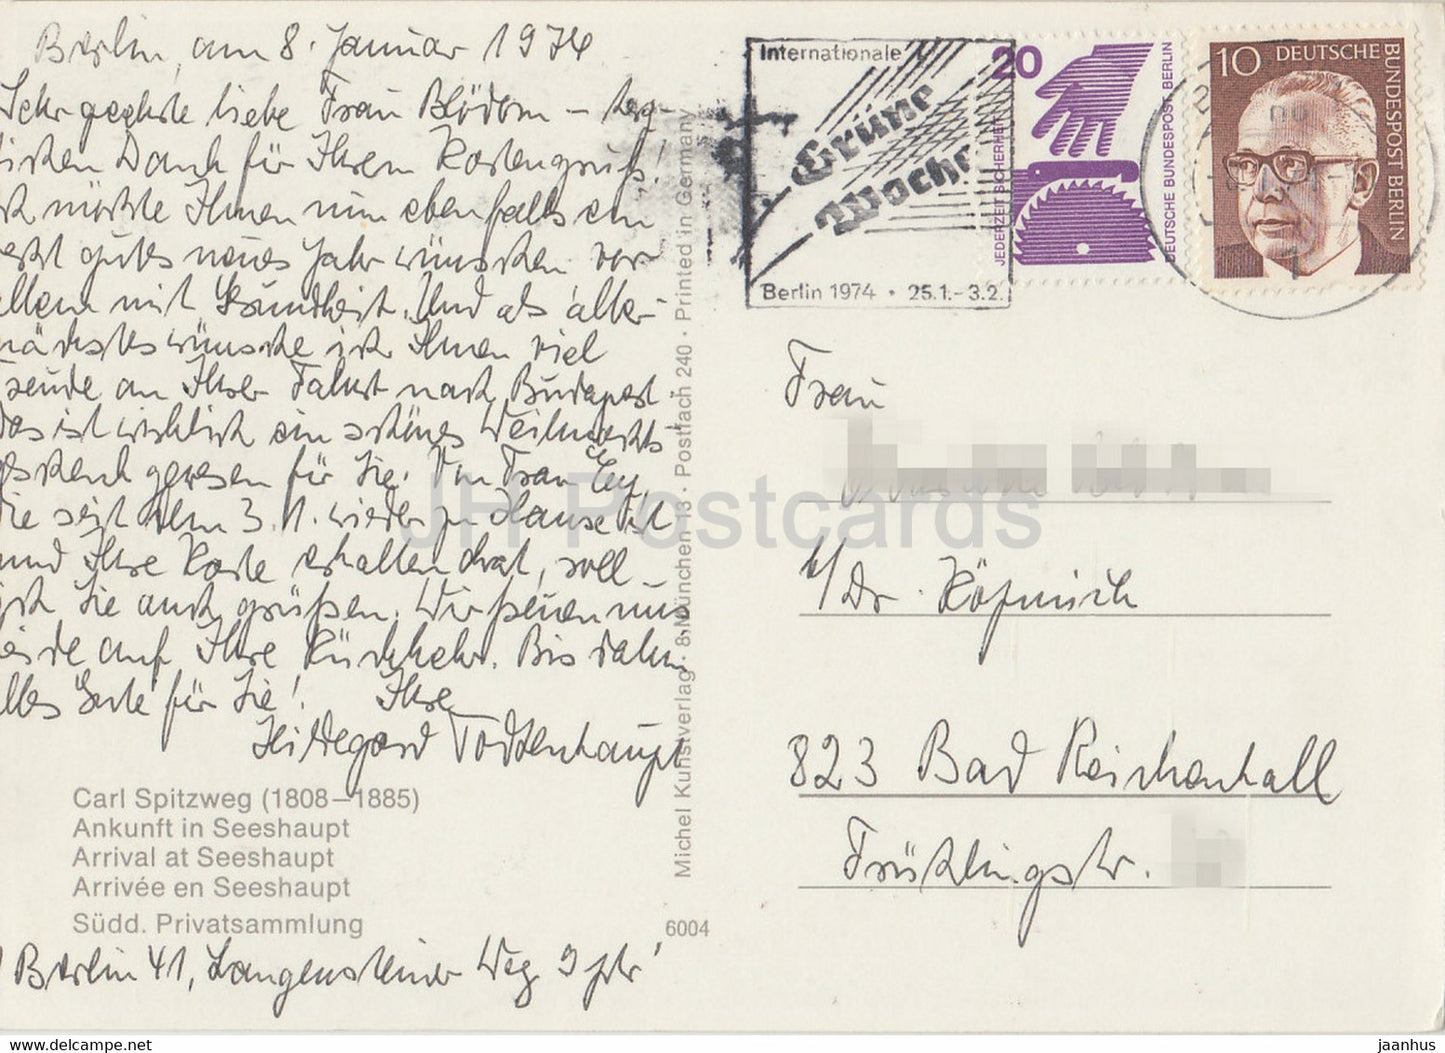 Berlin, am 8. Januar 1974
Sehr geehrte liebe Frau Blödorn – herz-
lichen Dank für Ihren Kartengruß!
ich möchte Ihnen nun ebenfalls ein
recht gutes neues Jahr wünschen vor
allem mit Gesundheit. Und als aller-
nächstes wünsche ich Ihnen viel
Freude an Ihrer Fahrt nach Budapest.
Das ist wirklich ein schönes Weihnachts
geschenk gewesen für Sie. Von Frau Ley,
die seit dem 3.1. wieder zu Hause ist
und Ihre Karte erhalten hat, soll
ich Sie auch grüßen. Wir freuen uns
beide auf Ihre Rückkehr. Bis dahin
alles Gute für Sie! Ihre
Hildegard Todtenhaupt
Carl Spitzweg (1808–1885)
Ankunft in Seeshaupt
Arrival at Seeshaupt
Arrivée en Seeshaupt
Südd. Privatsammlung
6004
1 Berlin 41, Langensteiner Weg 9 ptr
Michel Kunstverlag · 8 München 13 · Postfach 240 · Printed in Germany
Internationale
Grüne
Woche
Berlin 1974 · 25.1.–3.2.
20
JEDERZEIT SICHERHEIT
DEUTSCHE BUNDESPOST BERLIN
10 DEUTSCHE
BUNDESPOST BERLIN
Frau
b/Dr. Köpnick
823 Bad Reichenhall
Frühlingstr.
JH Postcards
jaanhus.ecrater.com